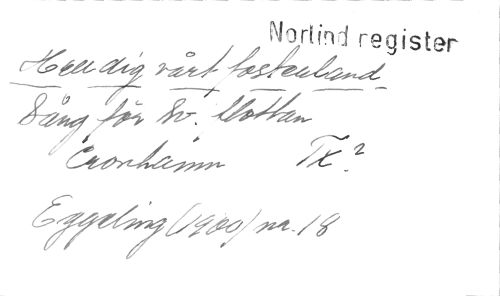 Norlind register
Hell dig vårt fosterland
Sång för Sv. Flottan
Cronhamn Tx?
Eggeling (1900) nr. 18